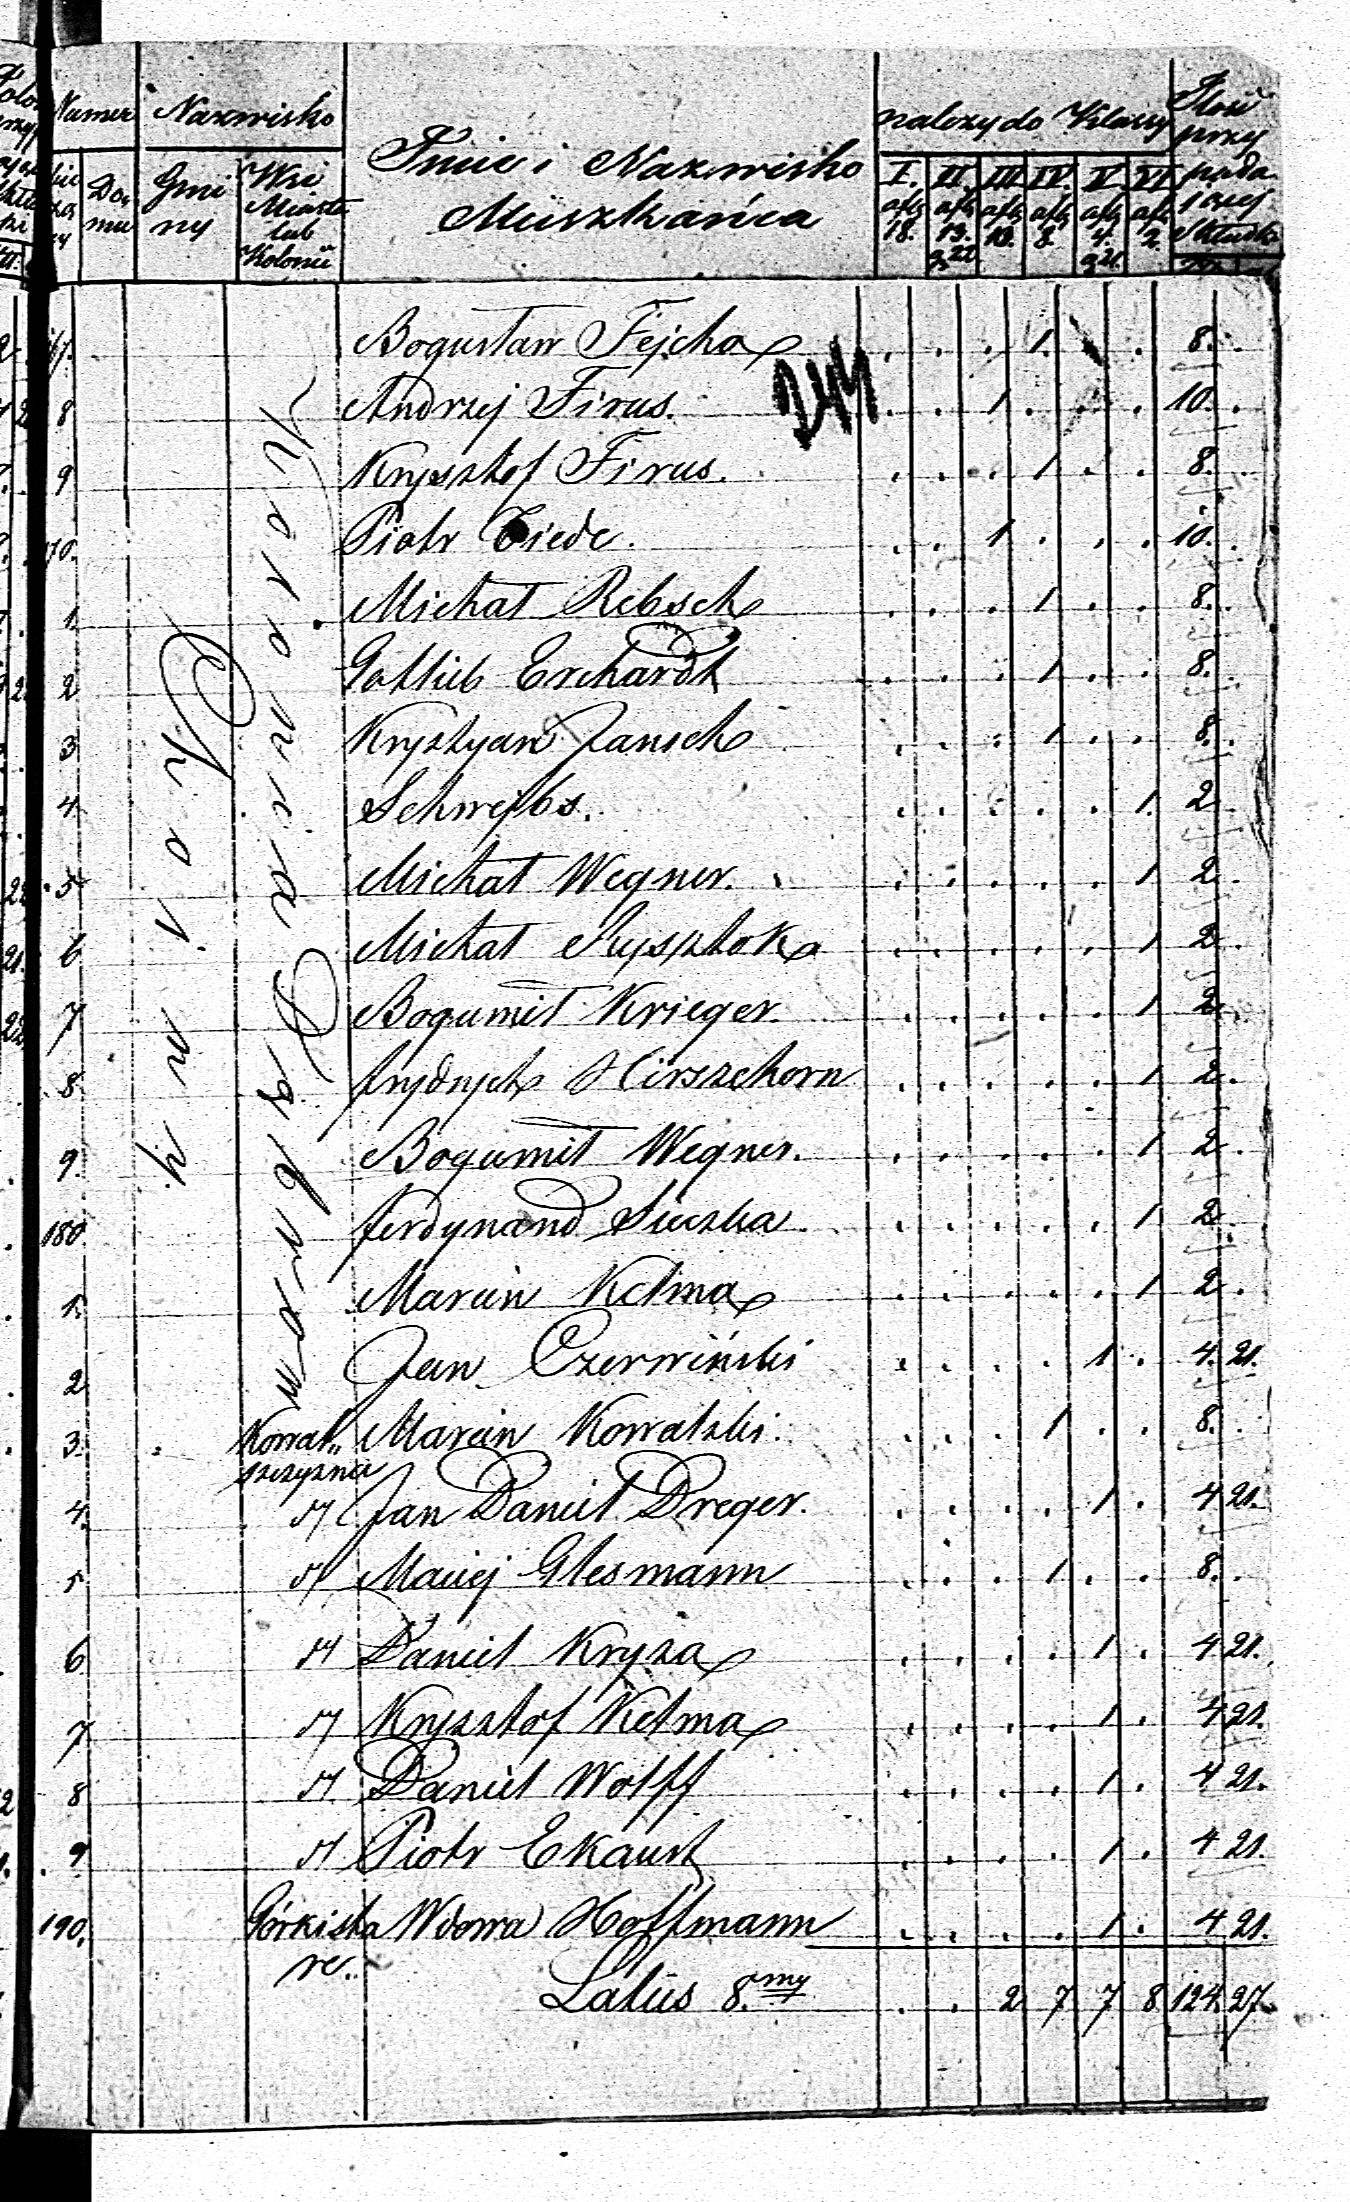 Numer Nazwisko Imie i Nazwisko Mieszkańca należy do Klassy Ilość przypada-
Domu Gminy Wsi Miasta lub Kolonii I. II. III. IV. V. VI.
18. 13. 22 10. 8. 4. 21. 2.
244
Choiny
Kolonia Dąbrowa
Bogusław Fejcha . . . 1. . . 8. .
8 Andrzej Firus. . . 1 . . . 10. .
9 Krysztof Firus. . . . 1 . . 8. .
170. Piotr Tiede. . . 1 . . . 10. .
1. Michał Rebsch . . . 1 . . 8. .
2 Gottlieb Erchardt . . . 1 . . 8. .
3 Krystyan Jansch . . . 1 . . 8. .
4 Schwejbs. . . . . . 1 2 .
5 Michał Wegner. . . . . . 1 2 .
6 Michał Rysztoka . . . . . 1 2 .
7 Bogumił Krieger. . . . . . 1 2 .
8. Frydrych Hirszehorn . . . . . 1 2 .
9. Bogumił Wegner. . . . . . 1 2 .
180 Ferdynand Sieczka . . . . . 1 2 .
1. Marcin Kelma . . . . . 1 2 .
2 Jan Czerwiński . . . . 1 . 4. 21.
3. Kowalszczyzna Marcin Kowalski . . . 1 . . 8. .
4. Jan Daniel Dreger. . . . . 1 . 4 21.
5 Maciej Glesmann . . . 1 . . 8. .
6 Daniel Kryza . . . . 1 . 4 21.
7 Krysztof Kelma . . . . 1 . 4 21.
8 Daniel Wolff . . . . 1 . 4 21.
9 Piotr Ekaurt . . . . 1 . 4 21.
190. Wdowa Hoffmann . . . . 1 . 4 21.
Latus 8.my . . 2 7 7 8 124 27.